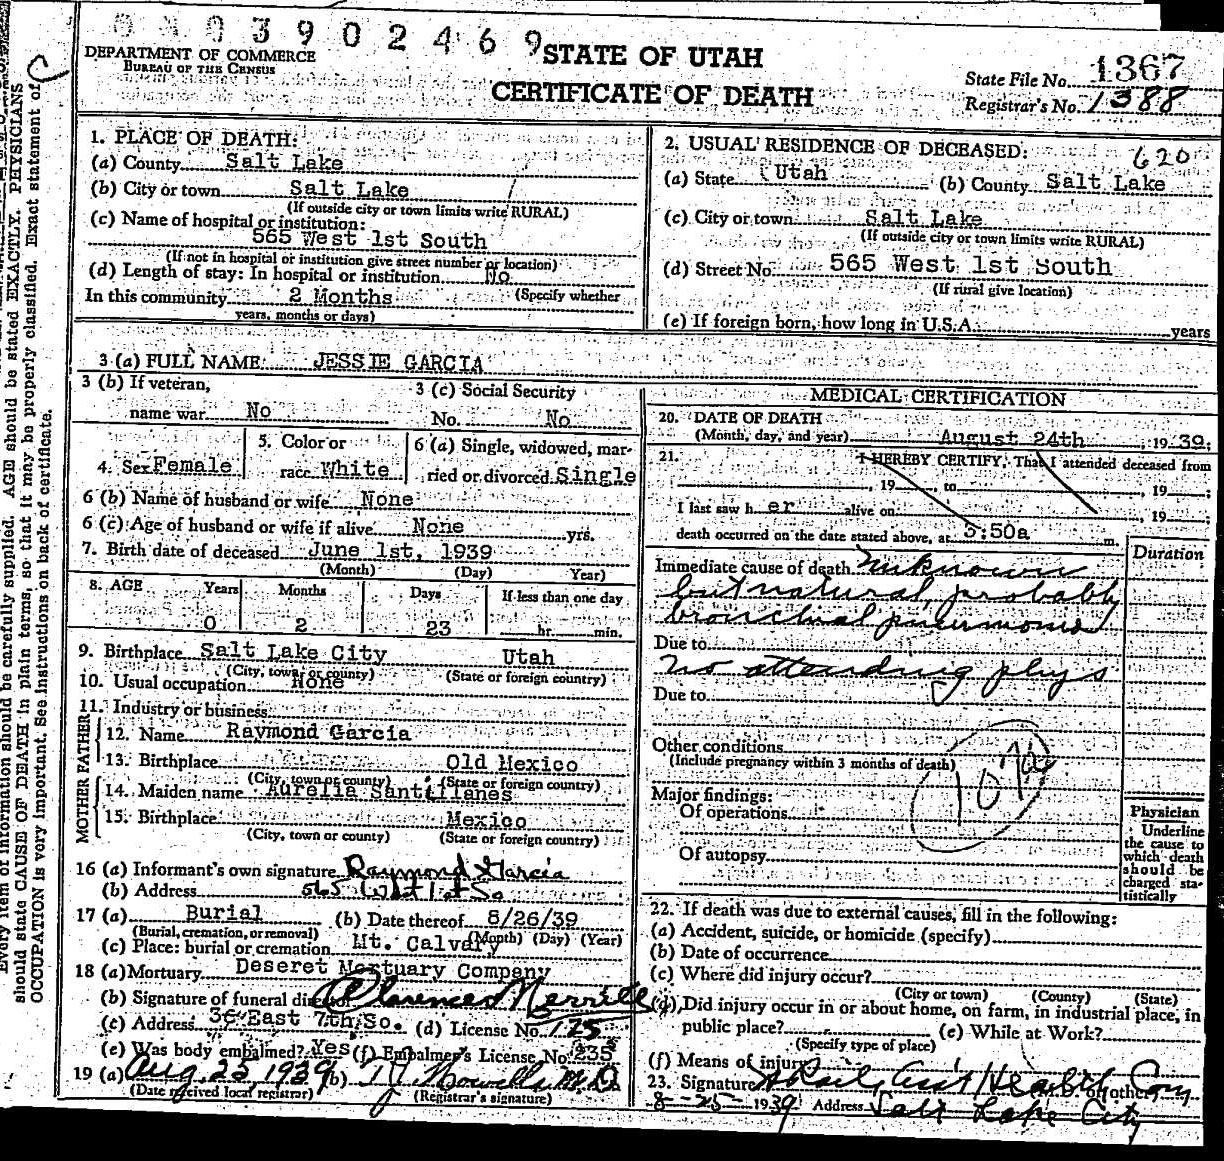 0 0 0 3 9 0 2 4 6 9
DEPARTMENT OF COMMERCE
BUREAU OF THE CENSUS
STATE OF UTAH
CERTIFICATE OF DEATH
State File No. 1367
Registrar's No. 1388
Every item of information should be carefully supplied. AGE should be stated EXACTLY. PHYSICIANS
should state CAUSE OF DEATH in plain terms, so that it may be properly classified. Exact statement of
OCCUPATION is very important. See instructions on back of certificate.
C
1. PLACE OF DEATH:
(a) County Salt Lake
(b) City or town Salt Lake
(If outside city or town limits write RURAL)
(c) Name of hospital or institution:
565 West 1st South
(If not in hospital or institution give street number or location)
(d) Length of stay: In hospital or institution No
In this community 2 Months (Specify whether
years, months or days)
2. USUAL RESIDENCE OF DECEASED: 620
(a) State Utah (b) County Salt Lake
(c) City or town Salt Lake
(If outside city or town limits write RURAL)
(d) Street No. 565 West 1st South
(If rural give location)
(e) If foreign born, how long in U.S.A. years
3 (a) FULL NAME JESSIE GARCIA
3 (b) If veteran,
name war No
3 (c) Social Security
No. No
4. Sex Female
5. Color or
race White
6 (a) Single, widowed, mar-
ried or divorced Single
6 (b) Name of husband or wife None
6 (c) Age of husband or wife if alive None yrs.
7. Birth date of deceased June 1st, 1939
(Month) (Day) Year)
8. AGE Years Months Days If less than one day
0 2 23 hr. min.
9. Birthplace Salt Lake City Utah
(City, town or county) (State or foreign country)
10. Usual occupation None
11. Industry or business
FATHER
12. Name Raymond Garcia
13. Birthplace Old Mexico
(City, town or county) (State or foreign country)
MOTHER
14. Maiden name Aurelia Santillanes
15. Birthplace Mexico
(City, town or county) (State or foreign country)
16 (a) Informant's own signature Raymond Garcia
(b) Address 565 West 1st So
17 (a) Burial (b) Date thereof 8/26/39
(Burial, cremation, or removal) (Month) (Day) (Year)
(c) Place: burial or cremation Mt. Calvary
18 (a) Mortuary Deseret Mortuary Company
(b) Signature of funeral director Clarence Merrill
(c) Address 36 East 7th So. (d) License No. 125
(e) Was body embalmed? Yes (f) Embalmer's License No. 235
19 (a) Aug. 25, 1939 (b) T.J. Howells M.D.
(Date received local registrar) (Registrar's signature)
MEDICAL CERTIFICATION
20. DATE OF DEATH
(Month, day, and year) August 24th, 1939;
21. I HEREBY CERTIFY, That I attended deceased from
, 19 , to , 19 ;
I last saw her alive on , 19 ;
death occurred on the date stated above, at 3:50a m.
Duration
Immediate cause of death Unknown
but natural, probably
bronchial pneumonia
Due to
no attending phys
Due to
Other conditions
(Include pregnancy within 3 months of death)
107
Major findings:
Of operations
Of autopsy
Physician
Underline
the cause to
which death
should be
charged sta-
tistically
22. If death was due to external causes, fill in the following:
(a) Accident, suicide, or homicide (specify)
(b) Date of occurrence
(c) Where did injury occur?
(City or town) (County) (State)
(d) Did injury occur in or about home, on farm, in industrial place, in
public place? (e) While at Work?
(Specify type of place)
(f) Means of injury
23. Signature Ass't Health Com
(M.D. or other)
8-25-1939 Address Salt Lake City